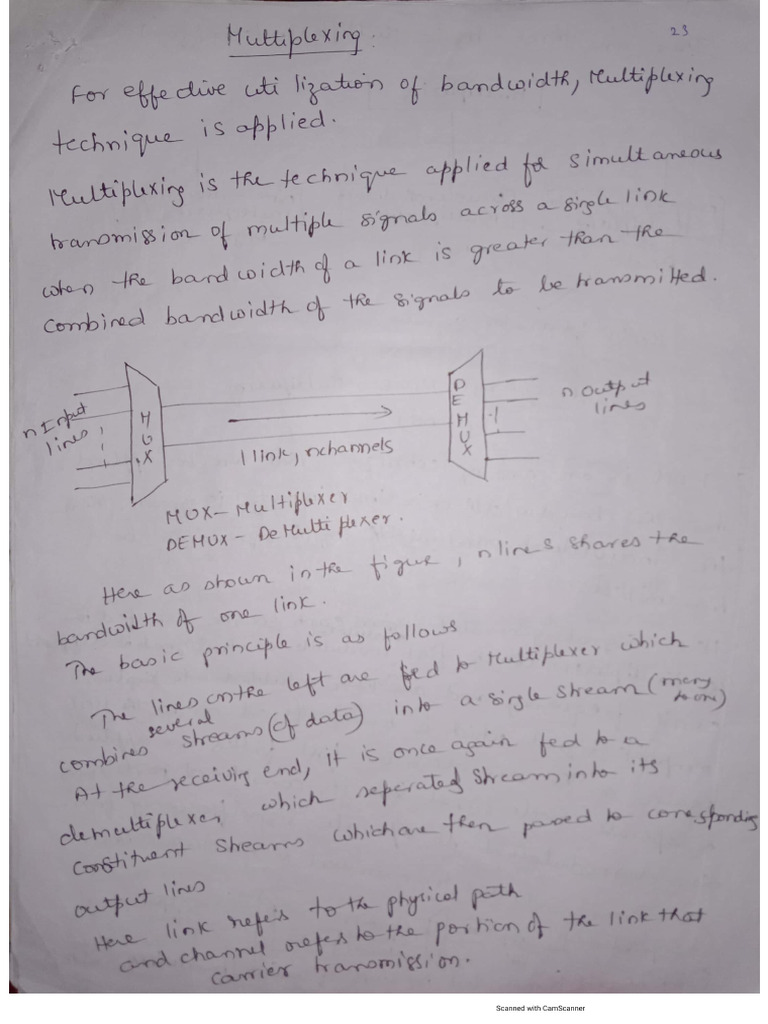 Multiplexing:
23
For effective utilization of bandwidth, Multiplexing
technique is applied.
Multiplexing is the technique applied for simultaneous
transmission of multiple signals across a single link
when the bandwidth of a link is greater than the
combined bandwidth of the signals to be transmitted.
n Input
lines
MUX
1 link, n channels
DEMUX
n output
lines
MUX - Multiplexer
DEMUX - DeMultiplexer.
Here as shown in the figure, n lines shares the
bandwidth of one link.
The basic principle is as follows
The lines on the left are fed to Multiplexer which
combines several streams (of data) into a single stream (many to one)
At the receiving end, it is once again fed to a
demultiplexer which seperated stream into its
constituent streams which are then passed to corresponding
output lines
Here link refers to the physical path
and channel refers to the portion of the link that
carrier transmission.
Scanned with CamScanner